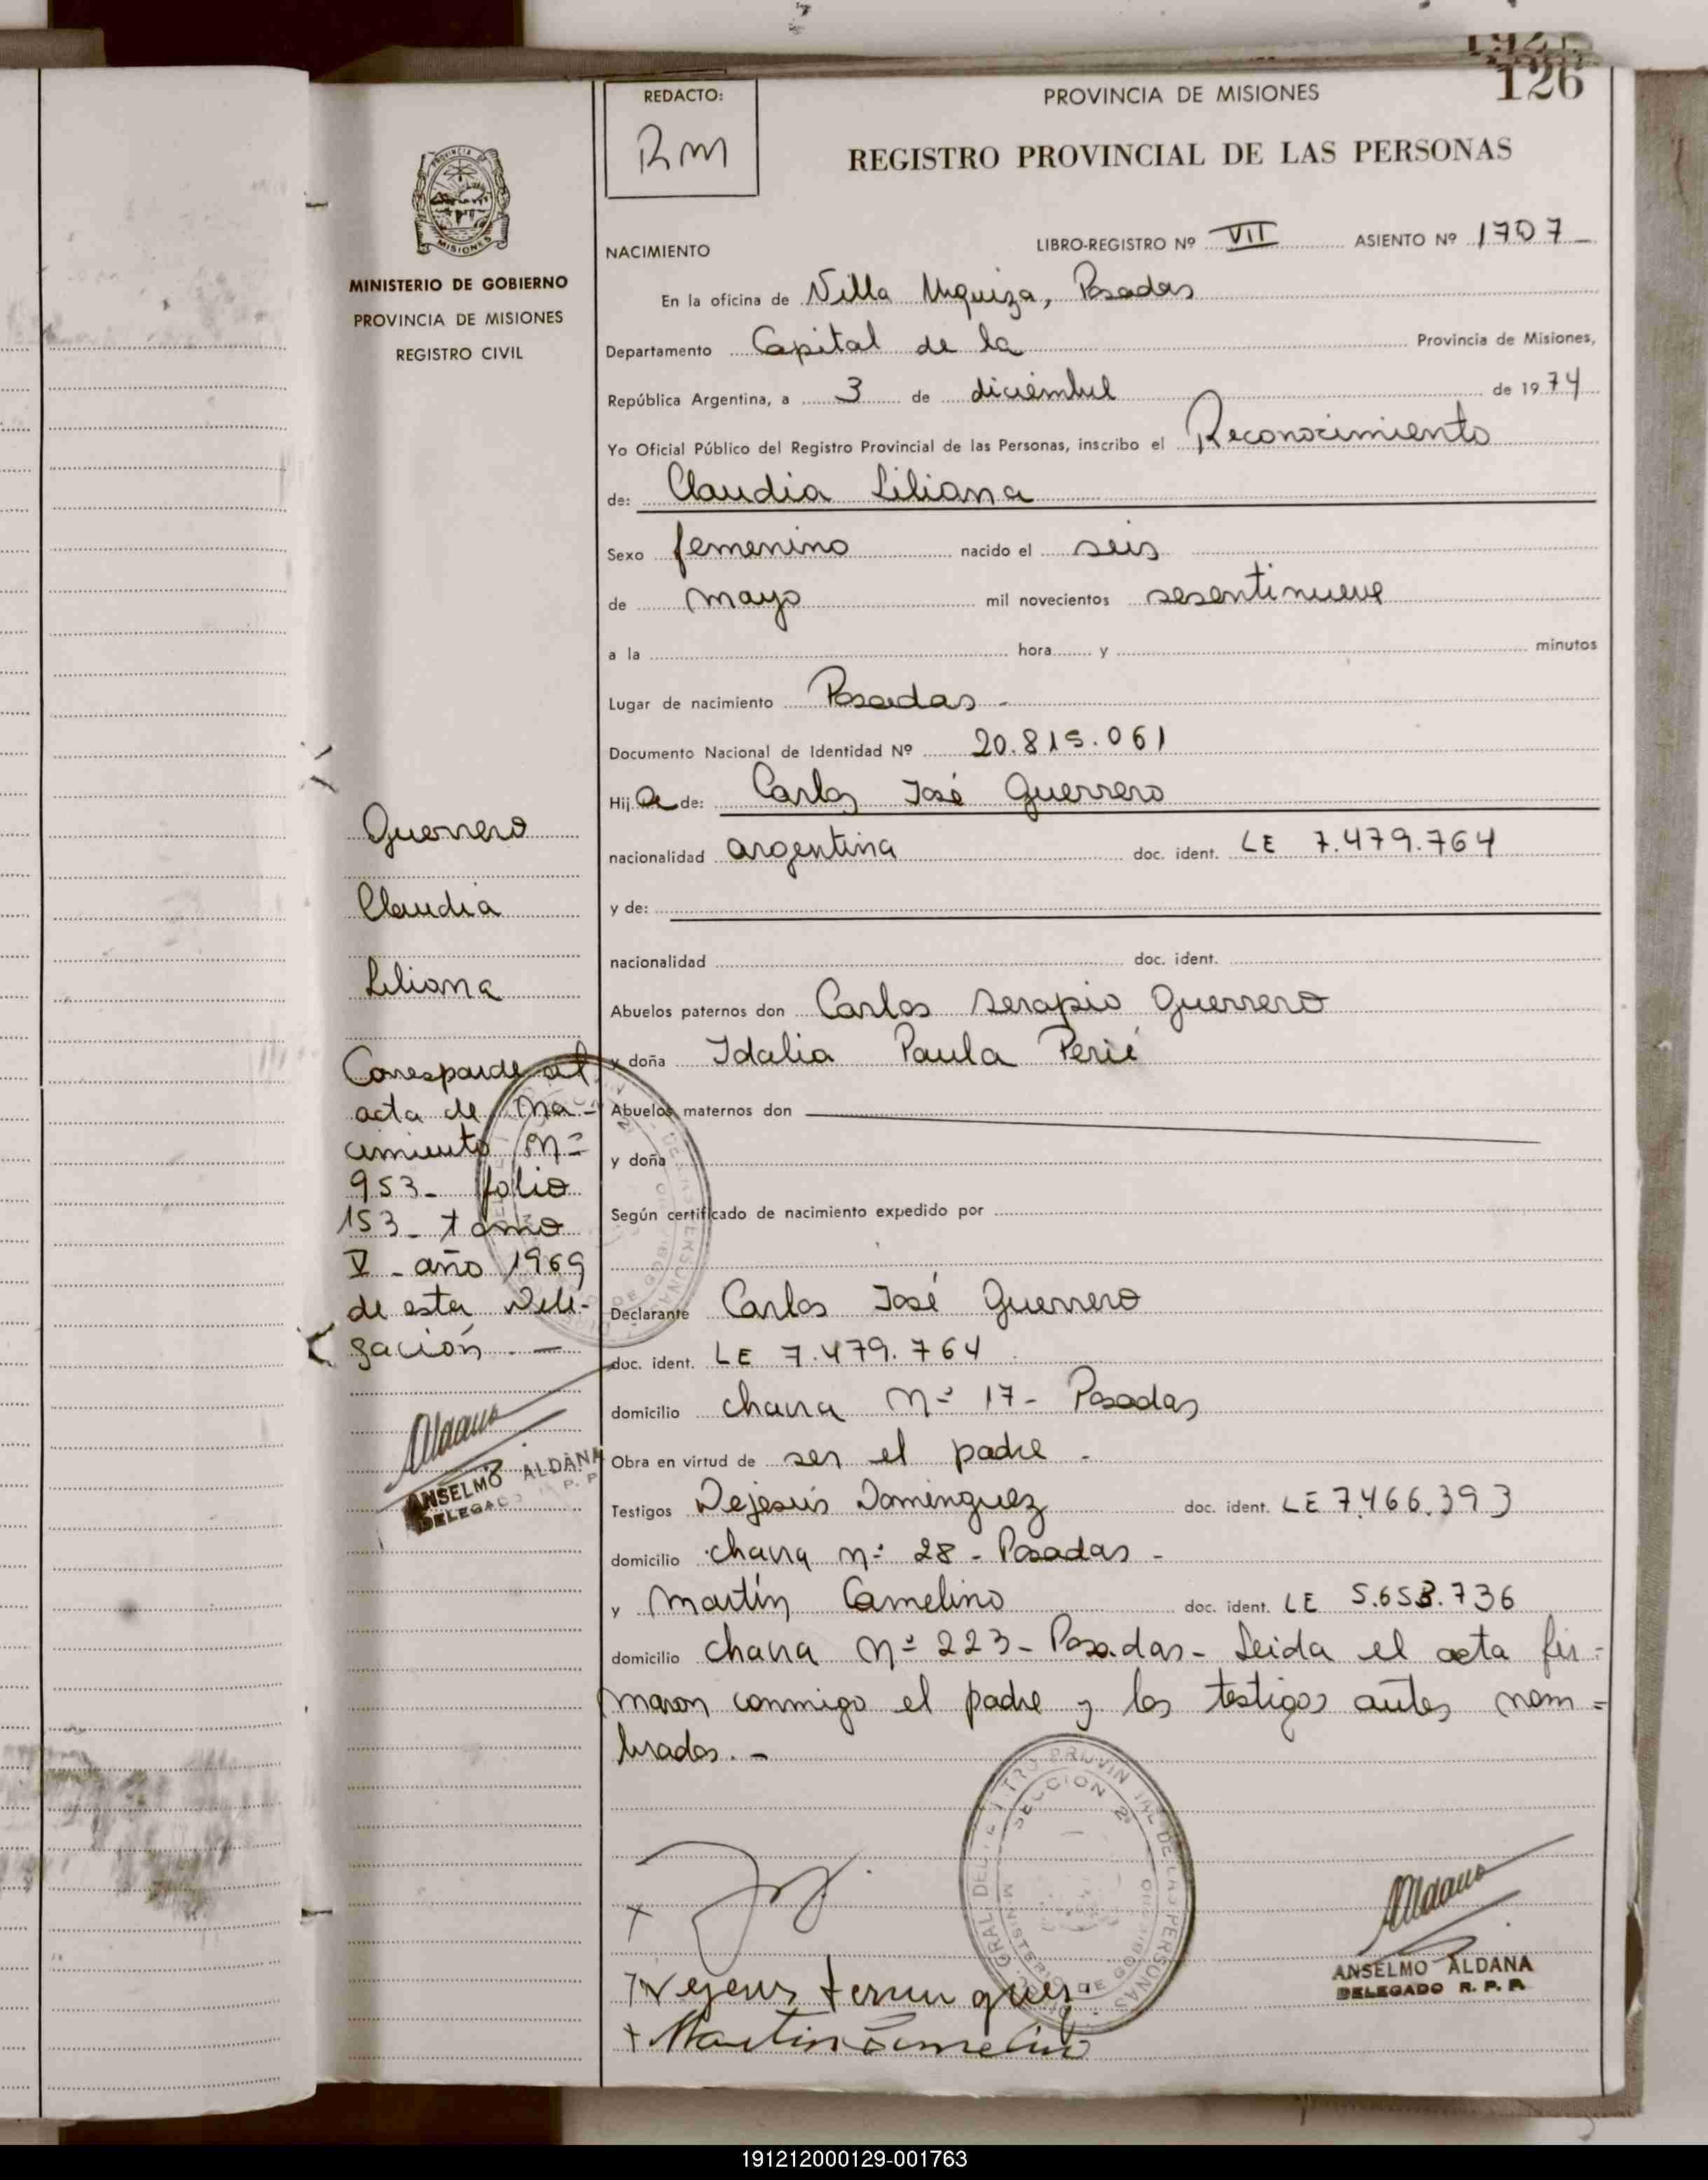 126
REDACTO:
RM
PROVINCIA DE MISIONES
REGISTRO PROVINCIAL DE LAS PERSONAS
MISIONES
MINISTERIO DE GOBIERNO
PROVINCIA DE MISIONES
REGISTRO CIVIL
NACIMIENTO
LIBRO-REGISTRO Nº VII ASIENTO Nº 1707
En la oficina de Villa Urquiza, Posadas
Departamento Capital de la Provincia de Misiones,
República Argentina, a 3 de diciembre de 1974
Yo Oficial Público del Registro Provincial de las Personas, inscribo el Reconocimiento
de: Claudia Liliana
Sexo femenino nacido el seis
de mayo mil novecientos sesentinueve
a la hora y minutos
Lugar de nacimiento Posadas -
Documento Nacional de Identidad Nº 20.815.061
Hija de: Carlos José Guerrero
nacionalidad argentina doc. ident. LE 7.479.764
y de:
nacionalidad doc. ident.
Abuelos paternos don Carlos Serapio Guerrero
y doña Idalia Paula Perié
Abuelos maternos don
y doña
Según certificado de nacimiento expedido por
Declarante Carlos José Guerrero
doc. ident. LE 7.479.764
domicilio chacra Nº 17- Posadas
Obra en virtud de ser el padre -
Testigos Dejesús Domínguez doc. ident. LE 7.466.393
domicilio chacra nº 28 - Posadas -
y Martín Camelino doc. ident. LE 5.653.736
domicilio chacra Nº 223- Posadas- Leida el acta fir=
maron conmigo el padre y los testigos antes nom=
brados. -
Guerrero
Claudia
Liliana
Corresponde al
acta de na-
cimiento Nº
953- folio
153- tomo
V - año 1969
de esta Dele-
gación. -
Aldana
ANSELMO ALDANA
DELEGADO R. P. P.
SECCION 2ª
MINISTERIO DE GOBIERNO
Martin Camelino
Aldana
ANSELMO ALDANA
DELEGADO R. P. P.
191212000129-001763